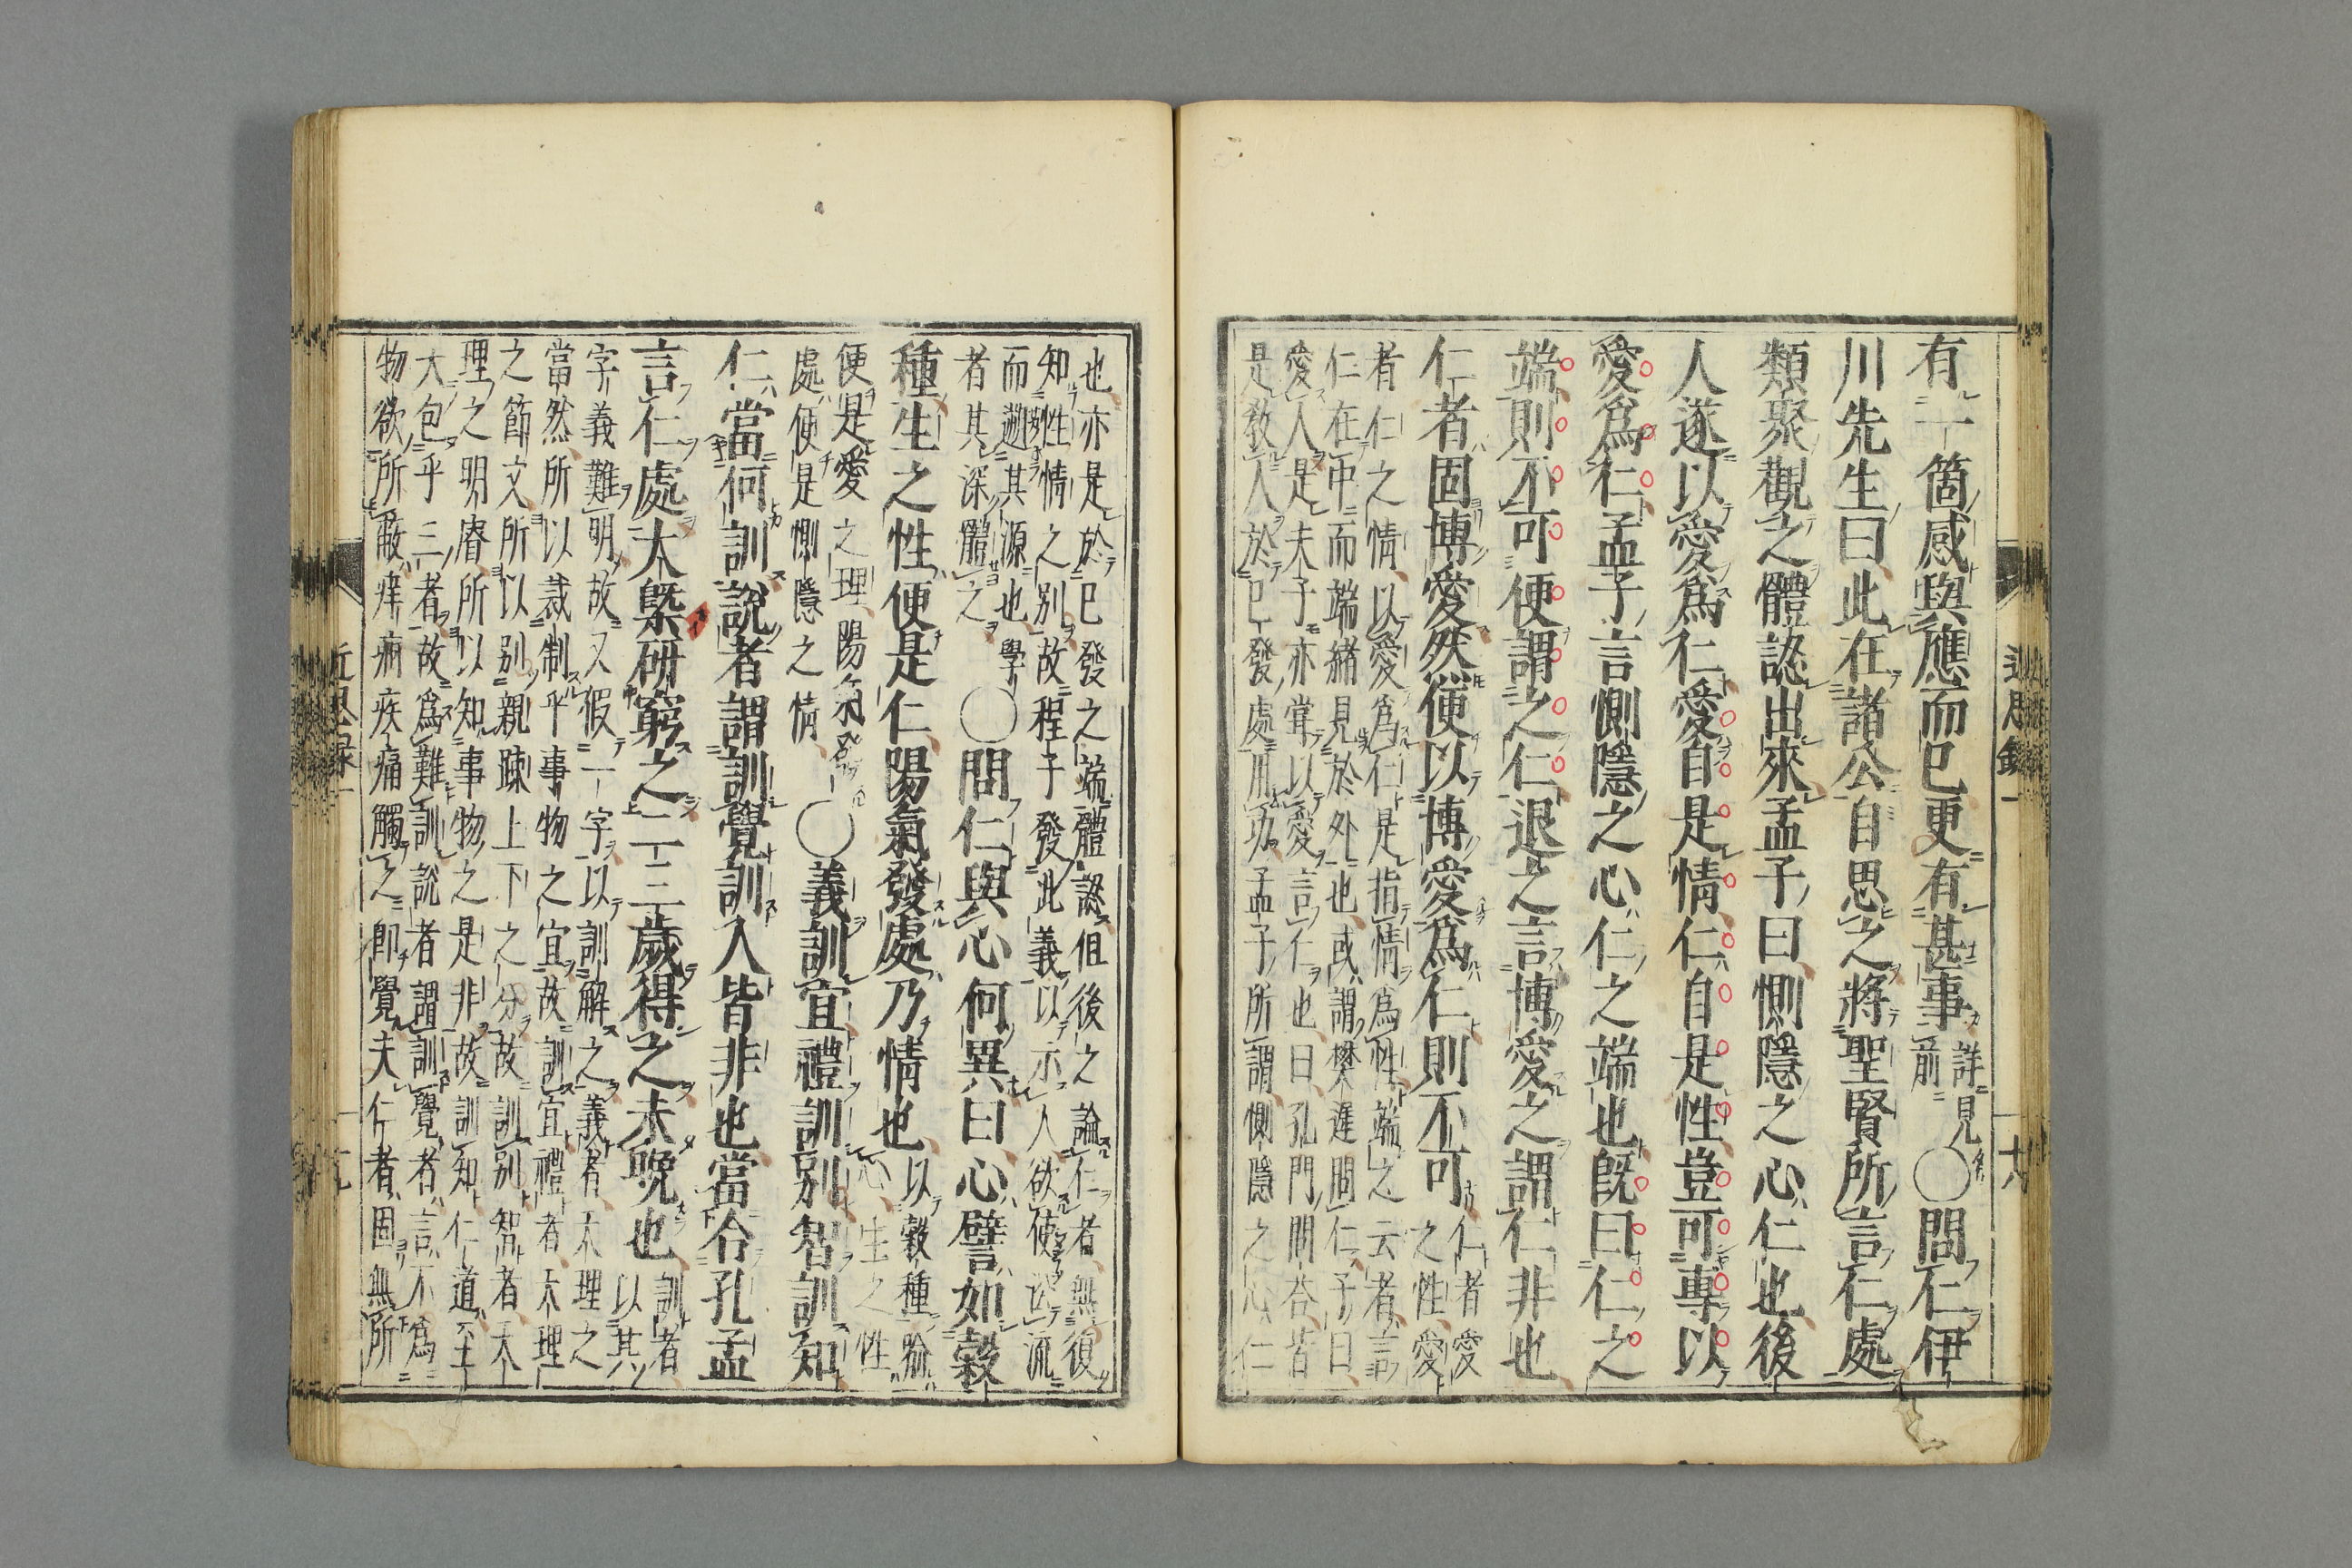 近思録一
十八
有一箇感與應而已更有甚事詳見前〇問仁伊
川先生曰此在諸公自思之將聖賢所言仁處
類聚觀之體認出來孟子曰惻隱之心仁也後
人遂以愛爲仁愛自是情仁自是性豈可專以
愛爲仁孟子言惻隱之心仁之端也既曰仁之
端則不可便謂之仁退之言博愛之謂仁非也
仁者固博愛然便以博愛爲仁則不可仁者愛之性愛
者仁之情以愛爲仁是指情爲性端之云者言
仁在中而端緒見於外也或謂樊遲問仁子曰
愛人是夫子亦嘗以愛言仁也曰孔門問答皆
是教人於已發處用功孟子所謂惻隱之心仁
也亦是於已發之端體認但後之論仁者無復
知性情之別故程子發此義以示人欲使沿流
而遡其源也學者其深體之〇問仁與心何異曰心譬如穀
種生之性便是仁陽氣發處乃情也以穀種喩心生之性
便是愛之理陽氣發處便是惻隱之情〇義訓宜禮訓別智訓知
仁當何訓說者謂訓覺訓人皆非也當合孔孟
言仁處大槩研窮之二三歲得之未晚也訓者以其
字義難明故又假一字以訓解之義者天理之
當然所以裁制乎事物之宜故訓宜禮者天理
之節文所以別親疎上下之分故訓別智者天
理之明睿所以知事物之是非故訓知仁道至
大包乎三者故爲難訓說者謂訓覺者言不爲
物欲所蔽痒痾疾痛觸之即覺夫仁者固無所
近思録一